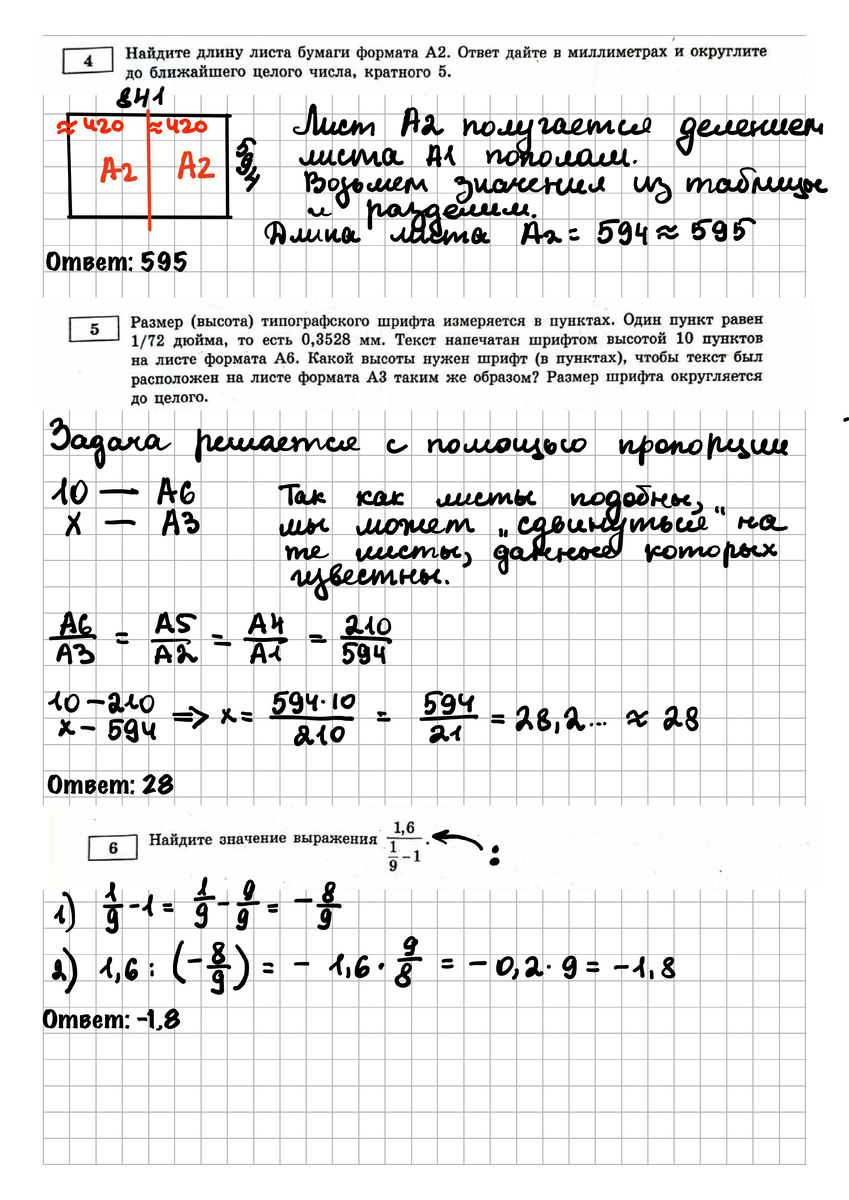 4 Найдите длину листа бумаги формата А2. Ответ дайте в миллиметрах и округлите
до ближайшего целого числа, кратного 5.
841
≈420 ≈420
А2 А2
594
Лист А2 получается делением
листа А1 пополам.
Возьмем значения из таблицы
и разделим.
Длина листа А2 = 594 ≈ 595
Ответ: 595
5 Размер (высота) типографского шрифта измеряется в пунктах. Один пункт равен
1/72 дюйма, то есть 0,3528 мм. Текст напечатан шрифтом высотой 10 пунктов
на листе формата А6. Какой высоты нужен шрифт (в пунктах), чтобы текст был
расположен на листе формата А3 таким же образом? Размер шрифта округляется
до целого.
Задача решается с помощью пропорции
10 — А6
х — А3
Так как листы подобны,
мы может „сдвинуться" на
те листы, данные которых
известны.
А6/А3 = А5/А2 = А4/А1 = 210/594
10 – 210
х – 594 => х = 594·10/210 = 594/21 = 28,2... ≈ 28
Ответ: 28
6 Найдите значение выражения 1,6/(1/9 – 1). ← :
1) 1/9 - 1 = 1/9 - 9/9 = - 8/9
2) 1,6 : (- 8/9) = - 1,6 · 9/8 = - 0,2 · 9 = -1,8
Ответ: -1,8